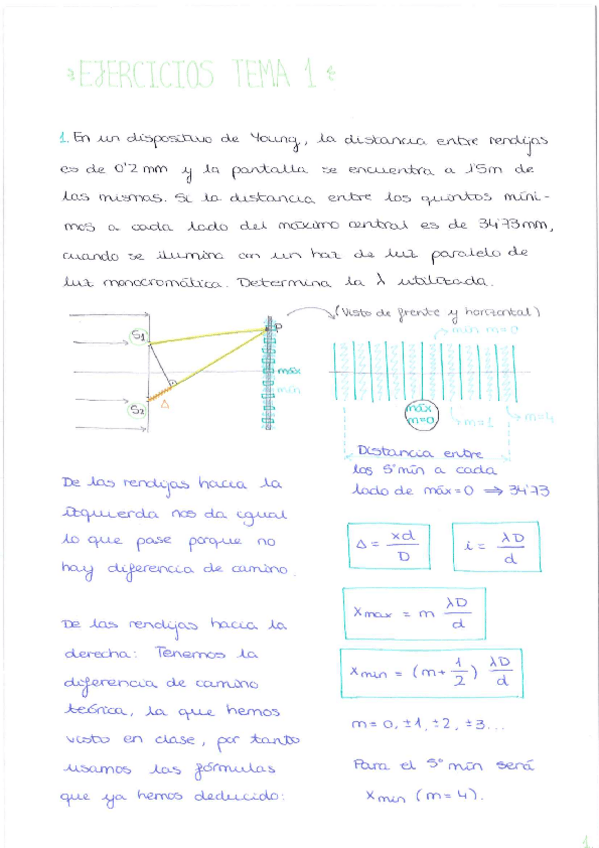 EJERCICIOS TEMA 1
1. En un dispositivo de Young, la distancia entre rendijas
es de 0'2 mm y la pantalla se encuentra a 1'5m de
las mismas. Si la distancia entre los quintos míni-
mos a cada lado del máximo central es de 34'73mm,
cuando se ilumina con un haz de luz paralelo de
luz monocromática. Determina la λ utilizada.
(Visto de frente y horizontal)
mín m=0
S1
P
máx
mín
S2
Δ
máx
m=0
m=1
m=4
Distancia entre
los 5º mín a cada
lado de máx=0 ⇒ 34'73
De las rendijas hacia la
izquierda nos da igual
lo que pase porque no
hay diferencia de camino.
De las rendijas hacia la
derecha: Tenemos la
diferencia de camino
teórica, la que hemos
visto en clase, por tanto
usamos las fórmulas
que ya hemos deducido:
Δ = xd/D
i = λD/d
Xmax = m λD/d
Xmin = (m+1/2) λD/d
m = 0, ±1, ±2, ±3...
Para el 5º mín será
Xmin (m=4).
1.